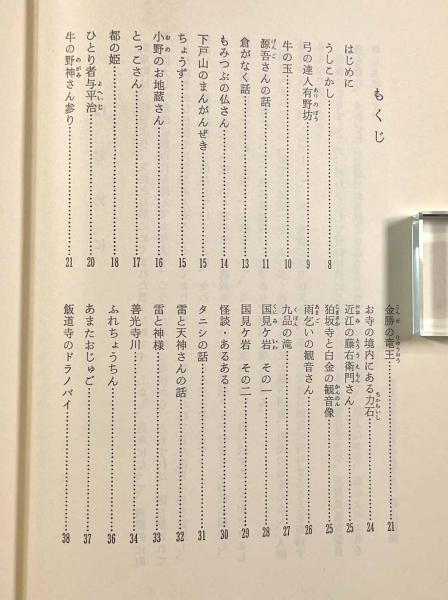 もくじ
はじめに
うしこかし……8
弓の達人有野坊……9
牛の玉……10
源吾さんの話……11
倉がなく話……13
もみつぶの仏さん……14
下戸山のまんがんぜき……15
ちょうず……15
小野のお地蔵さん……16
とっこさん……17
都の姫……18
ひとり者与平治……20
牛の野神さん参り……21
金勝の竜王……21
お寺の境内にある力石……24
近江の藤右衛門さん……25
狛坂寺と白金の観音像……25
雨乞いの観音さん……26
九品の滝……27
国見ケ岩 その一……28
国見ケ岩 その二……29
怪談・あるある……30
タニシの話……31
雷と天神さんの話……32
雷と神様……33
善光寺川……34
ふれちょうちん……36
あまたおじゅご……37
飯道寺のドラノバイ……38